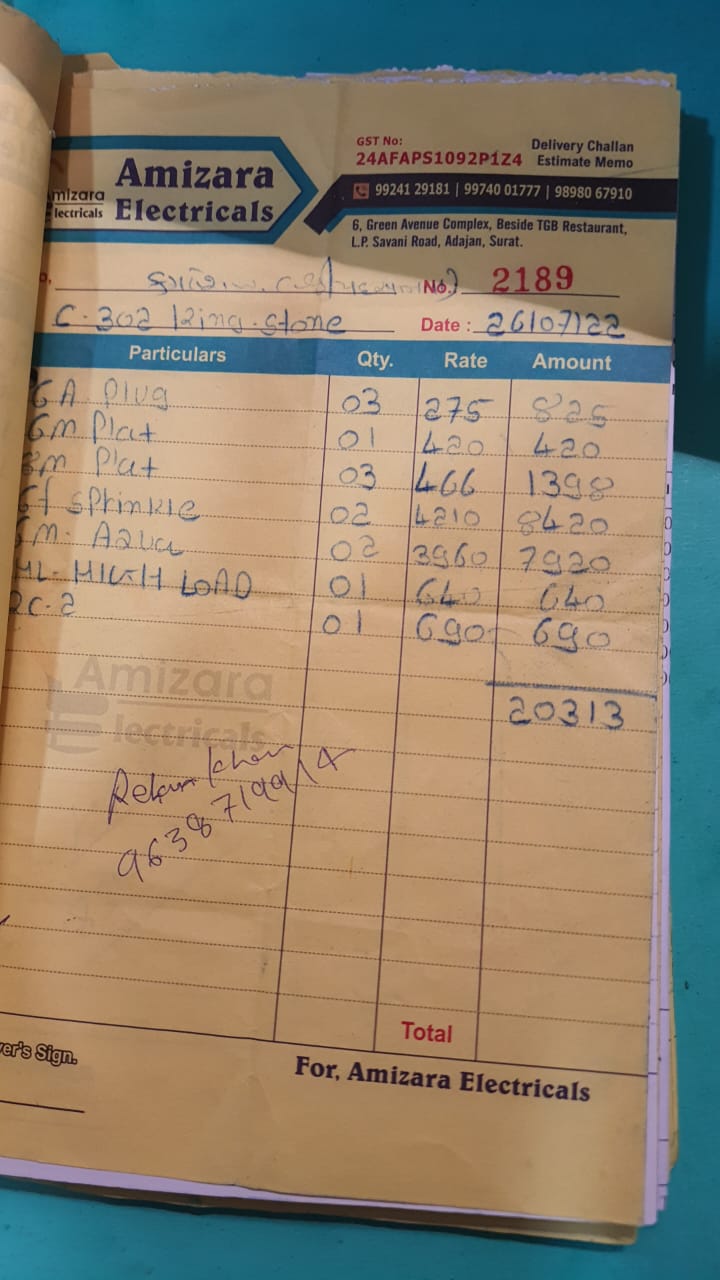 Amizara
Electricals
mizara
lectricals
GST No:
24AFAPS1092P1Z4
Delivery Challan
Estimate Memo
99241 29181 | 99740 01777 | 98980 67910
6, Green Avenue Complex, Beside TGB Restaurant,
L.P. Savani Road, Adajan, Surat.
No. 2189
C-302 King-stone Date : 26/07/22
Particulars Qty. Rate Amount
6 A Plug 03 275 825
6M Plat 01 420 420
8M Plat 03 466 1398
Sprinkle 02 4210 8420
M. Aqua 02 3960 7920
ML- HIGH LOAD 01 640 640
2C-2 01 690 690
20313
Amizara
lectricals
khan
9638719914
Total
er's Sign.
For, Amizara Electricals